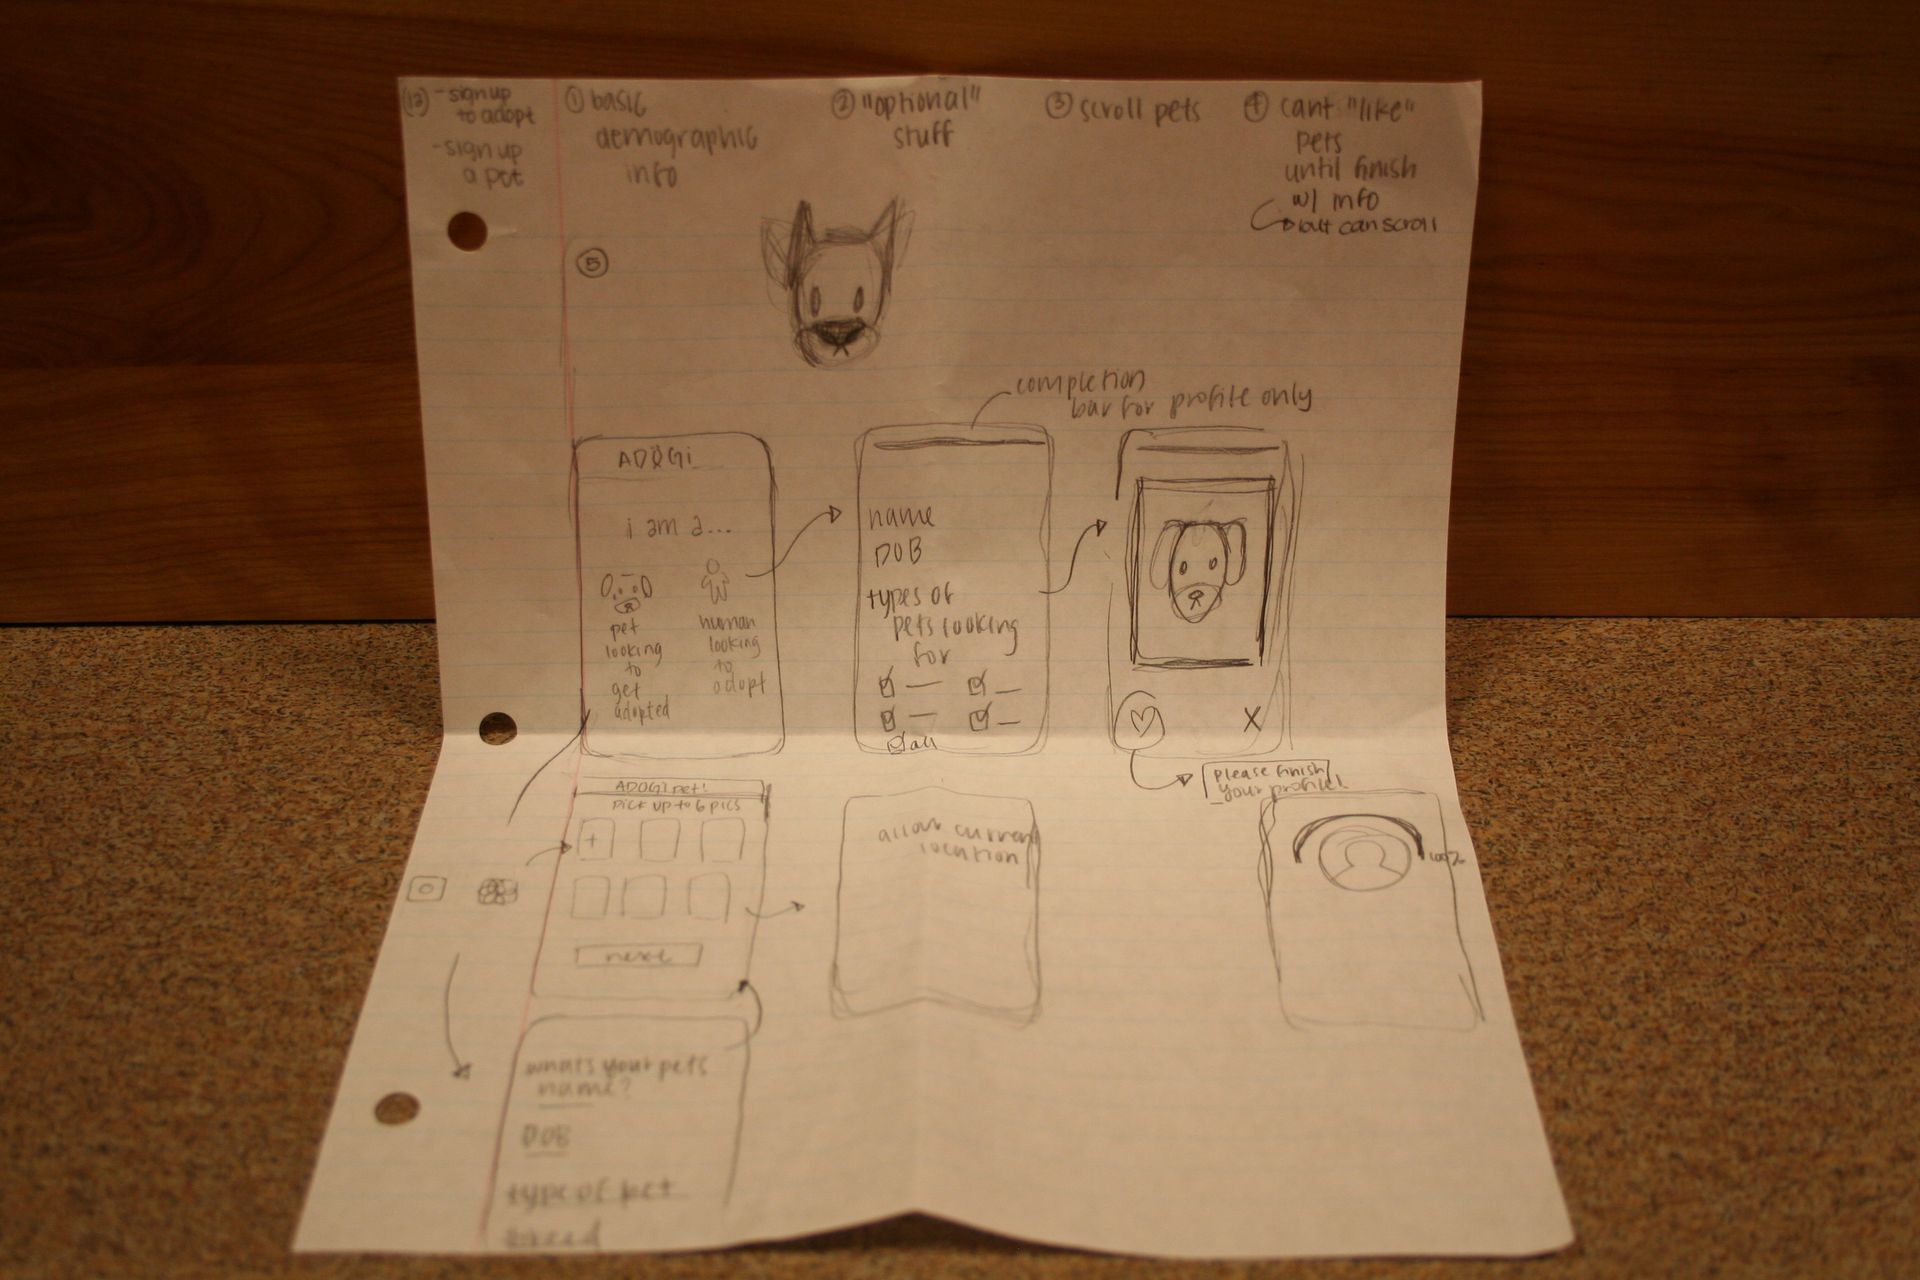 - sign up
to adopt
- sign up
a pet
① basic
demographic
info
② "optional"
stuff
③ scroll pets
④ cant "like"
pets
until finish
w/ info
but can scroll
⑤
completion
bar for profile only
ADOGi
i am a...
pet
looking
to
get
adopted
human
looking
to
adopt
name
DOB
types of
pets looking
for
all
please finish
your profile!
ADOGI pet!
pick up to 6 pics
+
next
allow current
location
100%
what's your pets
name?
DOB
type of pet
breed